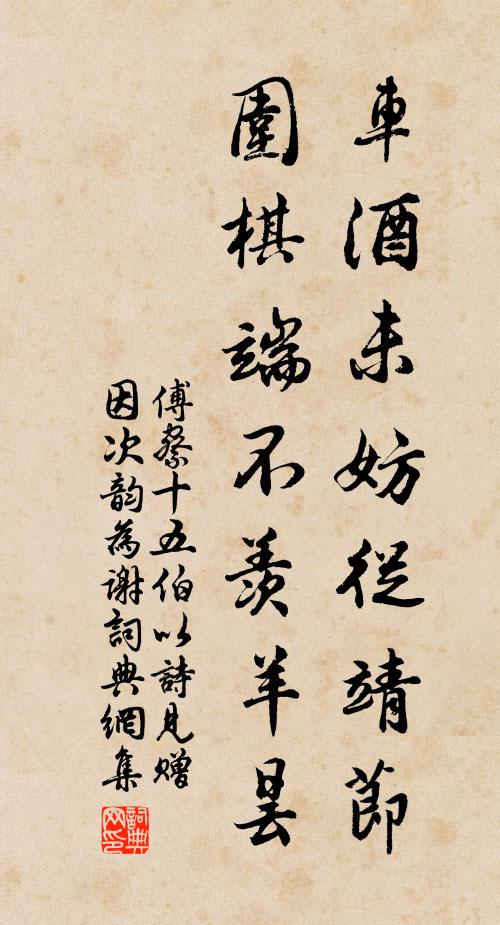 車酒未妨從靖節
圍棋端不羨羊曇
傅察十五伯以詩見贈
因次韵為謝詞典網集
詞典网印